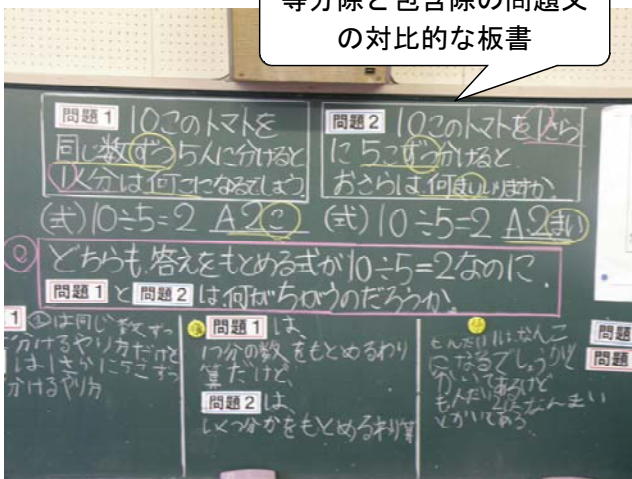 等分除と包含除の問題文
の対比的な板書
問題1 10このトマトを
同じ数ずつ5人に分けると
1人分は何こになるでしょう。
(式)10÷5=2 A.2こ
問題2 10このトマトを1さら
に5こずつ分けると
おさらは何まいいりますか。
(式)10÷5=2 A.2まい
Q
どちらも、答えをもとめる式が10÷5=2なのに、
問題1と問題2は、何がちがうのだろうか。
1 ①は同じ数ずつ
分けるやり方だけど
は1さらに5こずつ
分けるやり方
問題1は、
1つ分の数をもとめるわり
算だけど、
問題2は、
いくつ分かをもとめるわり算
もんだい1は、なんこ
になるでしょうかと
かいてあるけど
もんだい2は、なんまい
とかいてある。
問題
問題